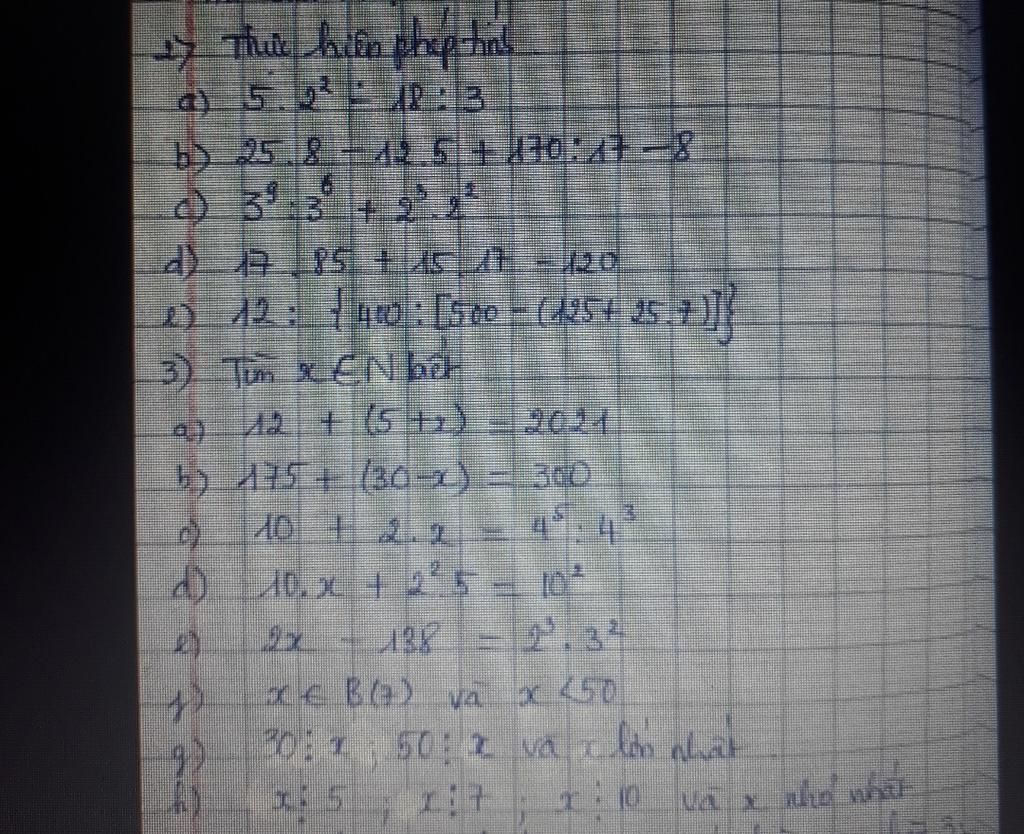 2) Thực hiện phép tính
a) 5 . 2² - 18 : 3
b) 25 . 8 - 12 . 5 + 170 : 17 - 8
c) 3⁹ : 3⁶ + 2³ . 2²
d) 17 . 85 + 15 . 17 - 120
e) 12 : {400 : [500 - (125 + 25 . 7)]}
3) Tìm x ∈ N biết
a) 12 + (5 + x) = 2021
b) 175 + (30 - x) = 300
c) 10 + 2 . x = 4⁵ : 4³
d) 10 . x + 2² . 5 = 10²
e) 2x - 138 = 2³ . 3²
f) x ∈ B(7) và x < 50
g) 30 ⋮ x ; 50 ⋮ x và x lớn nhất
h) x ⋮ 5 ; x ⋮ 7 ; x ⋮ 10 và x nhỏ nhất